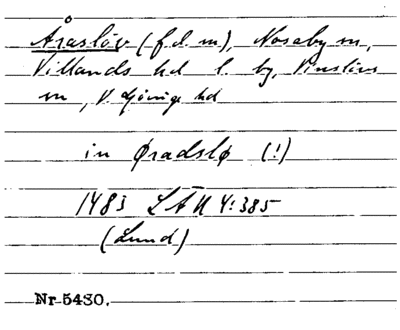 Åraslöv (f.d. m), Nosaby sn,
Villands hd l. by, Vinslövs
sn, V. Göinge hd
in Øradslø (!)
1483 LÄU 4:385
(Lund)
Nr 5430.